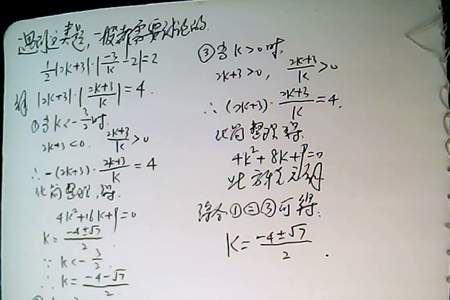 遇到这类题，一般都需要讨论的
1/2|2k+3|·|-3/k-2|=2
|2k+3|·|2k+3/k|=4.
①当k<-3/2时
2k+3<0. 2k+3/k>0
∴-(2k+3)·2k+3/k=4
化简整理,得
4k²+16k+9=0
k=-4±√7/2
∵k<-3/2
∴k=-4-√7/2
③当k>0时,
2k+3>0, 2k+3/k>0
∴(2k+3)·2k+3/k=4.
化简整理得
4k²+8k+9=0
此方程无解
综合①②③可得:
k=-4±√7/2.